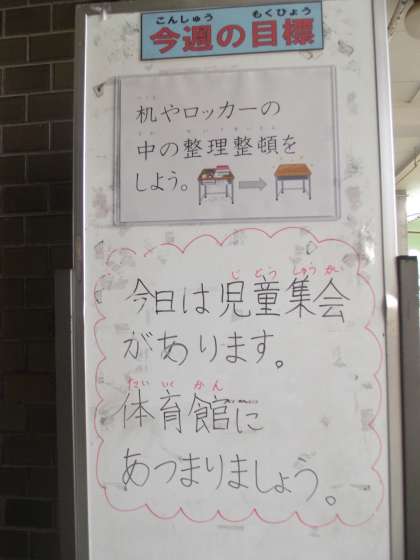 こんしゅう もくひょう
今週の目標
つくえ
机やロッカーの
なか せいりせいとん
中の整理整頓を
しよう。
じどうしゅうかい
今日は児童集会
があります。
たいいくかん
体育館に
あつまりましょう。